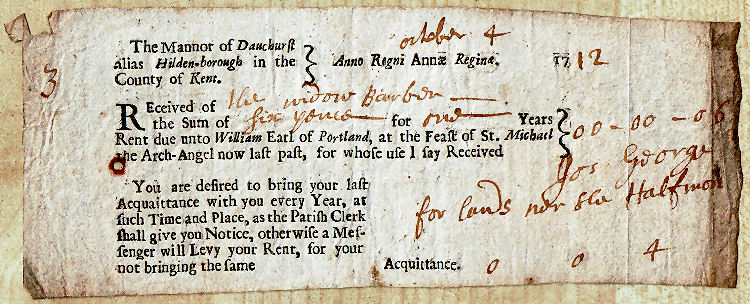 3
october 4
The Mannor of Dauchurſt
alias Hilden-borough in the Anno Regni Annæ Reginæ. 1712
County of Kent.
REceived of the widow Barber
the Sum of six pence for one Years 00-00-06
Rent due unto William Earl of Portland, at the Feaſt of St. Michael
the Arch-Angel now laſt paſt, for whoſe uſe I ſay Received
Jos George
You are deſired to bring your laſt
Acquittance with you every Year, at
ſuch Time and Place, as the Pariſh Clerk
ſhall give you Notice, otherwiſe a Meſ-
ſenger will Levy your Rent, for your
not bringing the ſame Acquittance. 0 0 4
for lands ner the Halfmon